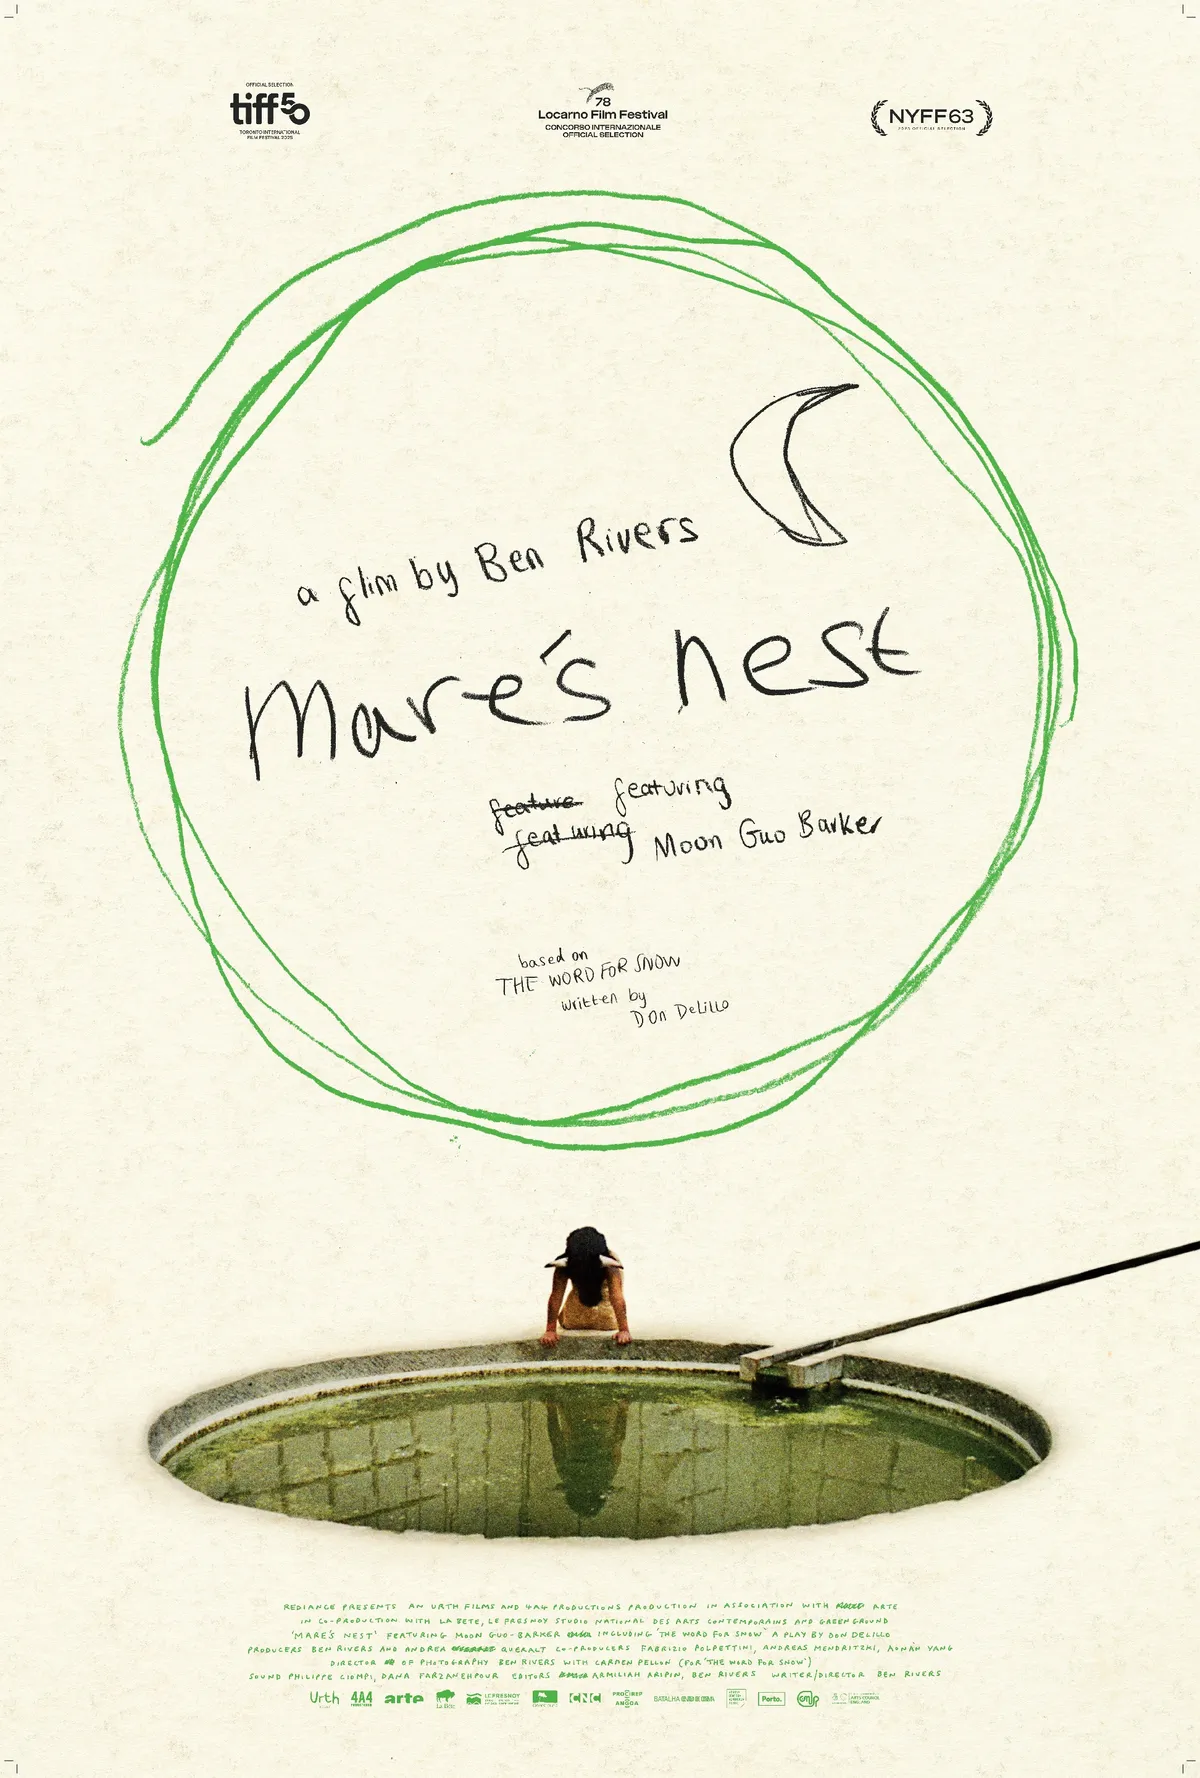 OFFICIAL SELECTION
tiff50
TORONTO INTERNATIONAL
FILM FESTIVAL 2025
78
Locarno Film Festival
CONCORSO INTERNAZIONALE
OFFICIAL SELECTION
NYFF63
2025 OFFICIAL SELECTION
a flim by Ben Rivers
Mare's nest
feature featuring
featuring Moon Guo Barker
based on
THE WORD FOR SNOW
written by
DON DeLILLO
REDIANCE PRESENTS AN URTH FILMS AND 4A4 PRODUCTIONS PRODUCTION IN ASSOCIATION WITH ARTE
IN CO-PRODUCTION WITH LA BETE, LE FRESNOY STUDIO NATIONAL DES ARTS CONTEMPORAINS AND GREENGROUND
'MARE'S NEST' FEATURING MOON GUO-BARKER INCLUDING 'THE WORD FOR SNOW' A PLAY BY DON DELILLO
PRODUCERS BEN RIVERS AND ANDREA QUERALT CO-PRODUCERS FABRIZIO POLPETTINI, ANDREAS MENDRITZKI, AONAN YANG
DIRECTOR OF PHOTOGRAPHY BEN RIVERS WITH CARMEN PELLON (FOR 'THE WORD FOR SNOW')
SOUND PHILIPPE CIOMPI, DANA FARZANEHPOUR EDITORS ARMILIAH ARIPIN, BEN RIVERS WRITER/DIRECTOR BEN RIVERS
Urth 4A4 arte La Bête LE FRESNOY CNC PROCIREP ANGOA BATALHA Porto.